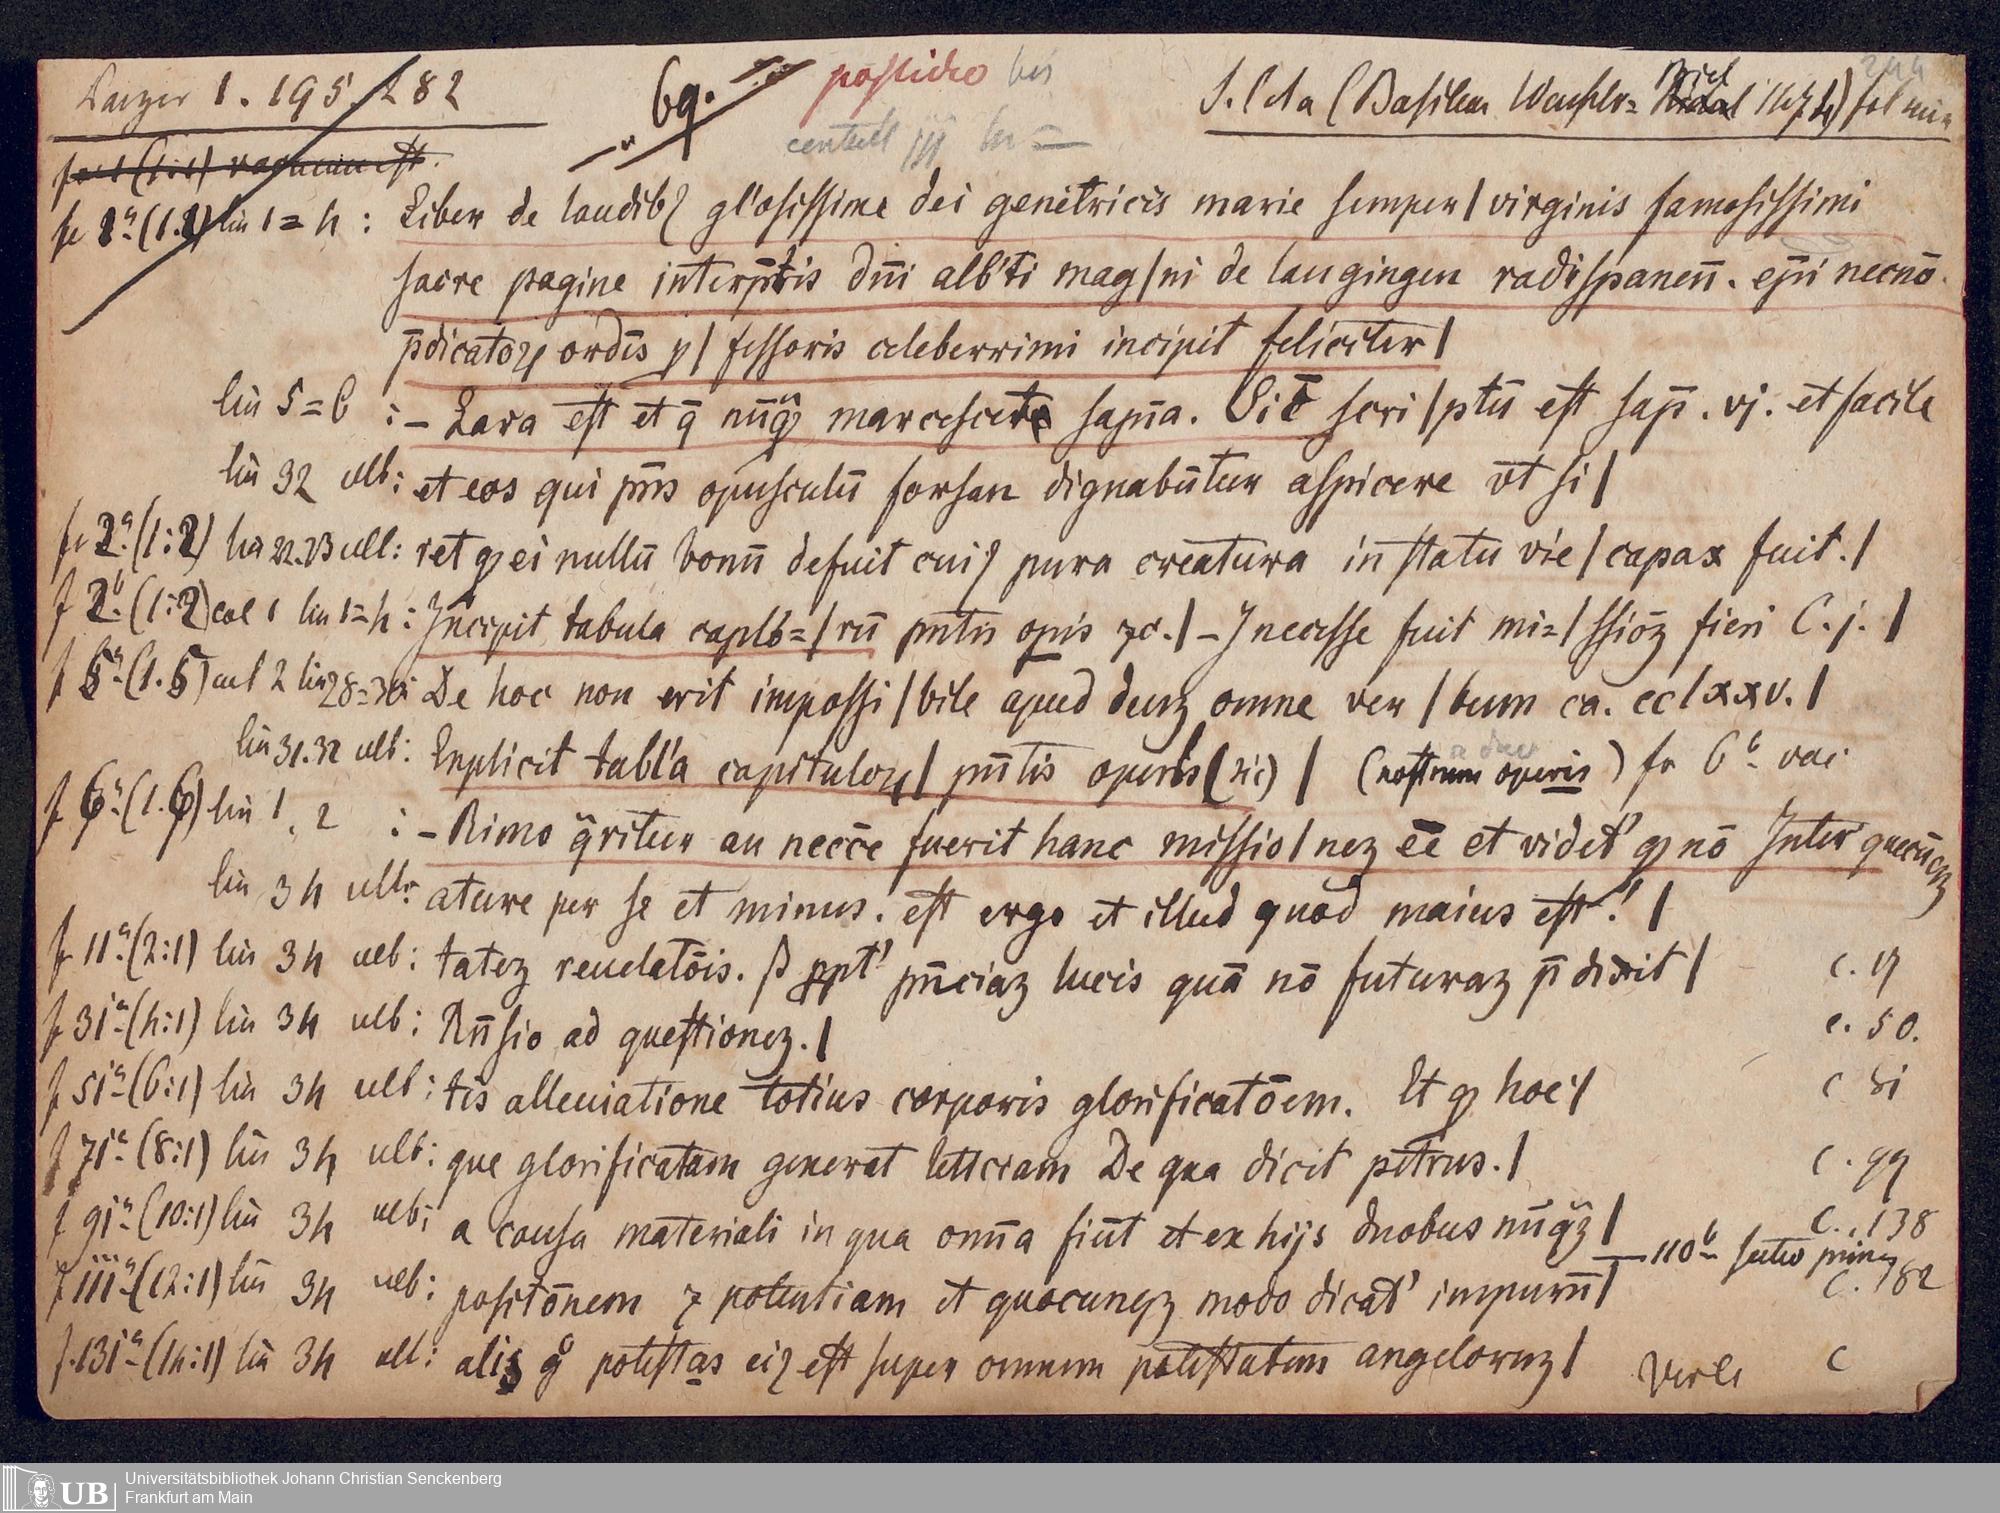 Panzer 1. 195. 282
69.
possideo bis
S. l et a (Basileae Wenssler = Richel 147.) fol min
f 1a (1.1) lin 1=4 : Liber de laudibꝰ gl'osissime dei genitricis marie semper / virginis famosissimi
sacre pagine interp̄tis dn̄i alb'ti mag/ni de laugingen radispanen̄. ep̄i necnō
p̄dicatoꝝ ordīs p / fessoris celeberrimi incipit feliciter /
lin 5=6 : – Lara est et q̄ nūq̄ marcescet sapn̄a. Sic̄ scri / ptū est sap̄. vj. et facile
lin 32 ult: et eos qui pn̄s opusculū forsan dignabūtur aspicere vt si /
f 2a (1:2) lin 22.23 ult: ret ꝙ ei nullū bonū defuit cuiꝰ pura creatura in statu vie / capax fuit. /
f 2b (1:2) col 1 lin 1=4 : Incipit tabula caplo= / rū pn̄tis opis ⁊c. / – J necesse fuit mi= / ssioꝫ fieri C. j. /
f 5a (1.5) col 2 lin 28=30: De hoc non erit impossi / bile apud deuꝫ omne ver / bum ca. cclxxv. /
lin 31.32 ult: Explicit tabl'a capituloꝝ / pn̄tis operis (sic) / (nostrum operis) f 6b vac
f 6a (1.6) lin 1, 2 : – Rimo q̄ritur an necc̄e fuerit hanc missio / neꝫ ēe et videt' ꝙ nō Inter quecūqꝫ
lin 34 ult: ature per se et minus. est ergo et illud quod maius est. /
f 11a (2:1) lin 34 ult: tateꝫ reuelatōis. ꝓpt' pn̄ciaꝫ lucis quā nō futuraꝫ p̄dixit / c. 9
f 31a (4:1) lin 34 ult: Rn̄sio ad questioneꝫ. / c. 50.
f 51a (6:1) lin 34 ult: tis alleuiatione totius corporis glorificatōem. Et ꝙ hoc / c 81
f 71a (8:1) lin 34 ult: que glorificatam generat letitiam De qua dicit petrus. / c. 99
f 91a (10:1) lin 34 ult: a causa materiali in qua omn̄a fiūt et ex hijs duobus nūq̄ꝫ / c. 138
110b
f 111a (12:1) lin 34 ult: positōnem ⁊ potentiam et quocunqꝫ modo dicat' impurū / c. 182
f. 131a (14:1) lin 34 ult: alis g̊ potestas eiꝰ est super omnem potestatem angeloruꝫ / Verte c
UB Universitätsbibliothek Johann Christian Senckenberg
Frankfurt am Main